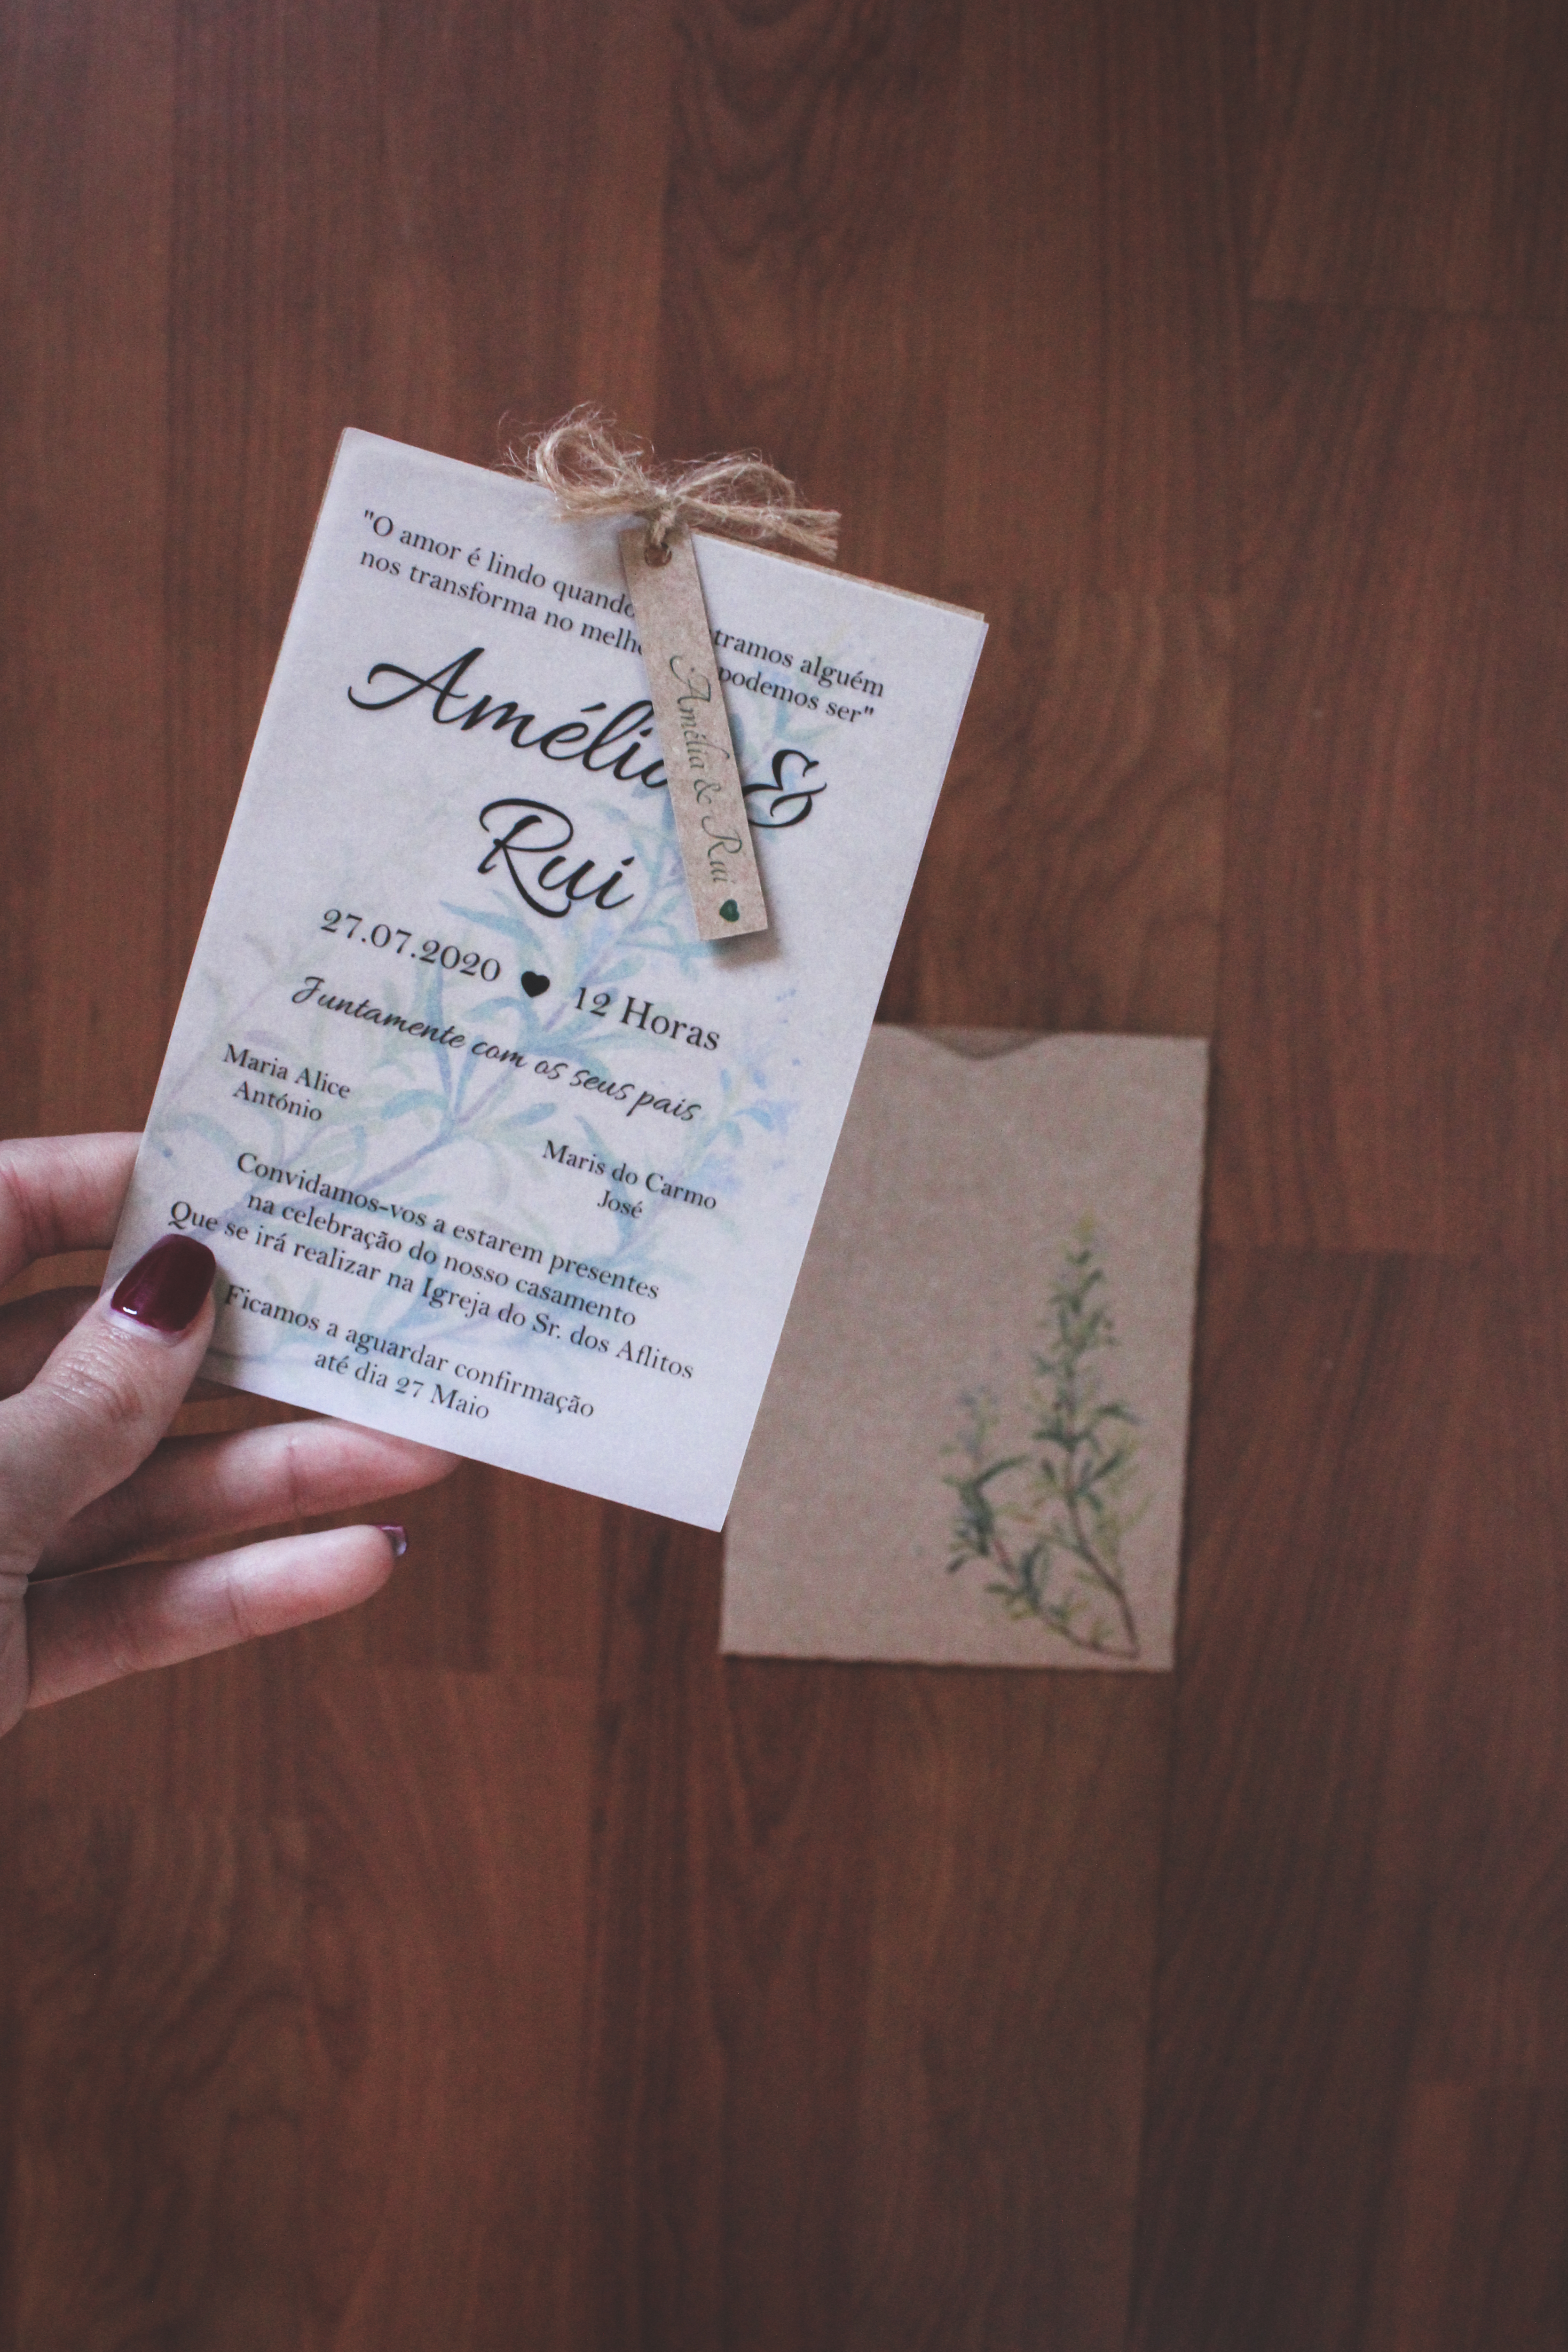 "O amor é lindo quando tramos alguém
nos transforma no podemos ser"
Amélia &
Rui
27.07.2020 12 Horas
Juntamente com os seus pais
Maria Alice
António
Maris do Carmo
José
Convidamos-vos a estarem presentes
na celebração do nosso casamento
Que se irá realizar na Igreja do Sr. dos Aflitos
Ficamos a aguardar confirmação
até dia 27 Maio
Amélia & Rui